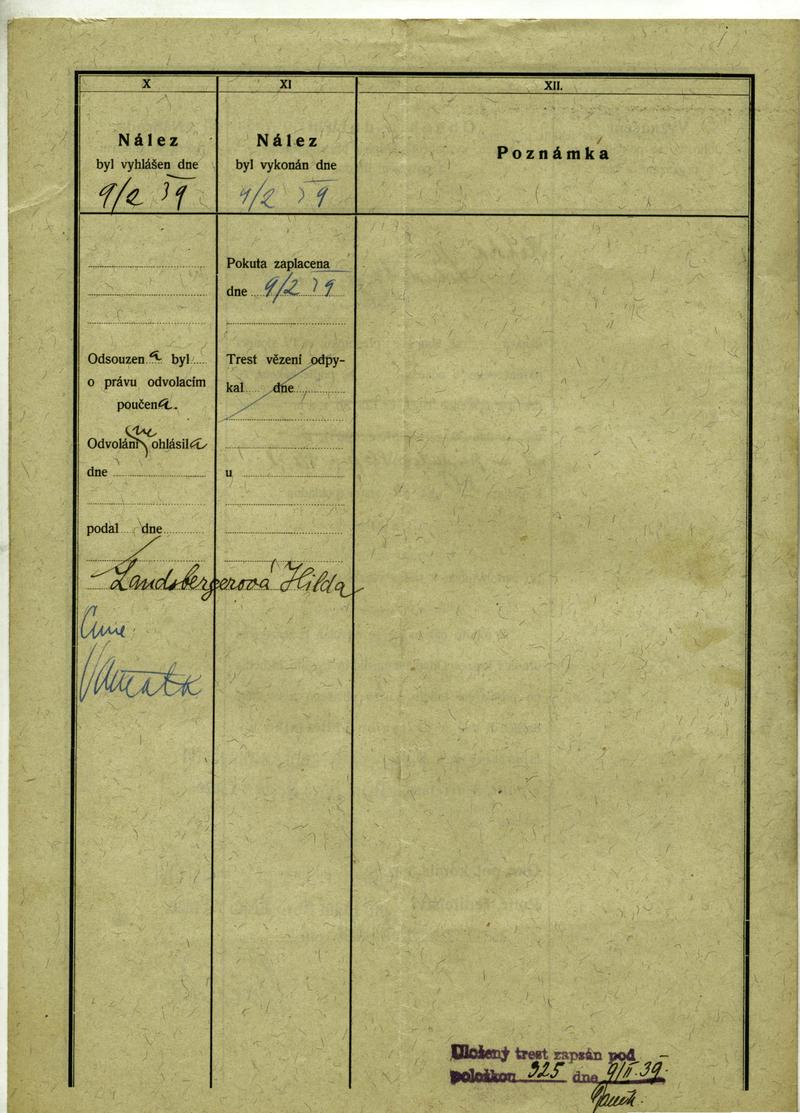 X
Nález
byl vyhlášen dne
9/2 39
Odsouzena byl
o právu odvolacím
poučena.
Odvolání ne ohlásila
dne
podal dne
XI
Nález
byl vykonán dne
9/2 39
Pokuta zaplacena
dne 9/2 39
Trest vězení odpy-
kal dne
u
XII.
Poznámka
Landsbergerová Hilda
Uložený trest zapsán pod
položkou 325 dne 9/II.39.